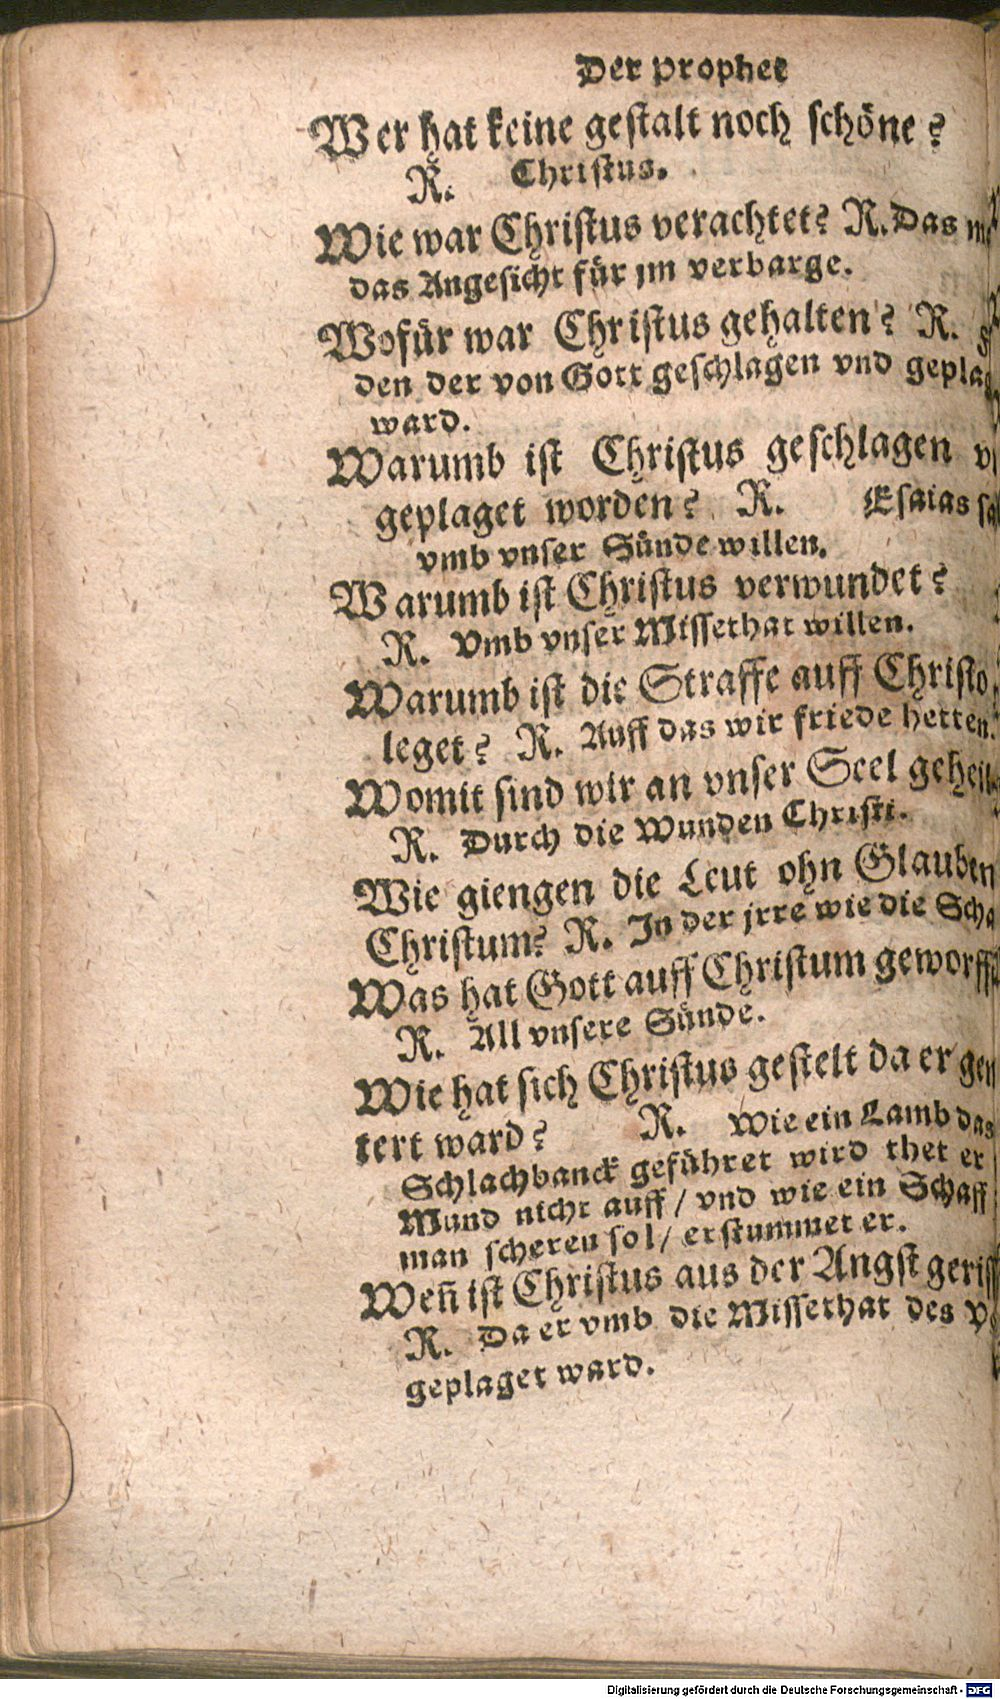 Der Prophet
Wer hat keine gestalt noch schöne?
R. Christus.
Wie war Christus verachtet? R. Das
das Angesicht für jm verbarge.
Wofür war Christus gehalten? R.
den der von Gott geschlagen vnd
ward.
Warumb ist Christus geschlagen
geplaget worden? R. Esaias
vmb vnser Sünde willen.
Warumb ist Christus verwundet?
R. Vmb vnser Missethat willen.
Warumb ist die Straffe auff Christo
leget? R. Auff das wir friede hetten.
Womit sind wir an vnser Seel
R. Durch die Wunden Christi.
Wie giengen die Leut ohn Glauben
Christum? R. In der jrre wie die
Was hat Gott auff Christum
R. All vnsere Sünde.
Wie hat sich Christus gestelt da er
tert ward? R. Wie ein Lamb das
Schlachbanck geführet wird thet er
Mund nicht auff / vnd wie ein Schaff
man scheren sol / erstummet er.
Weñ ist Christus aus der Angst
R. Da er vmb die Missethat des
geplaget ward.
Digitalisierung gefördert durch die Deutsche Forschungsgemeinschaft - DFG